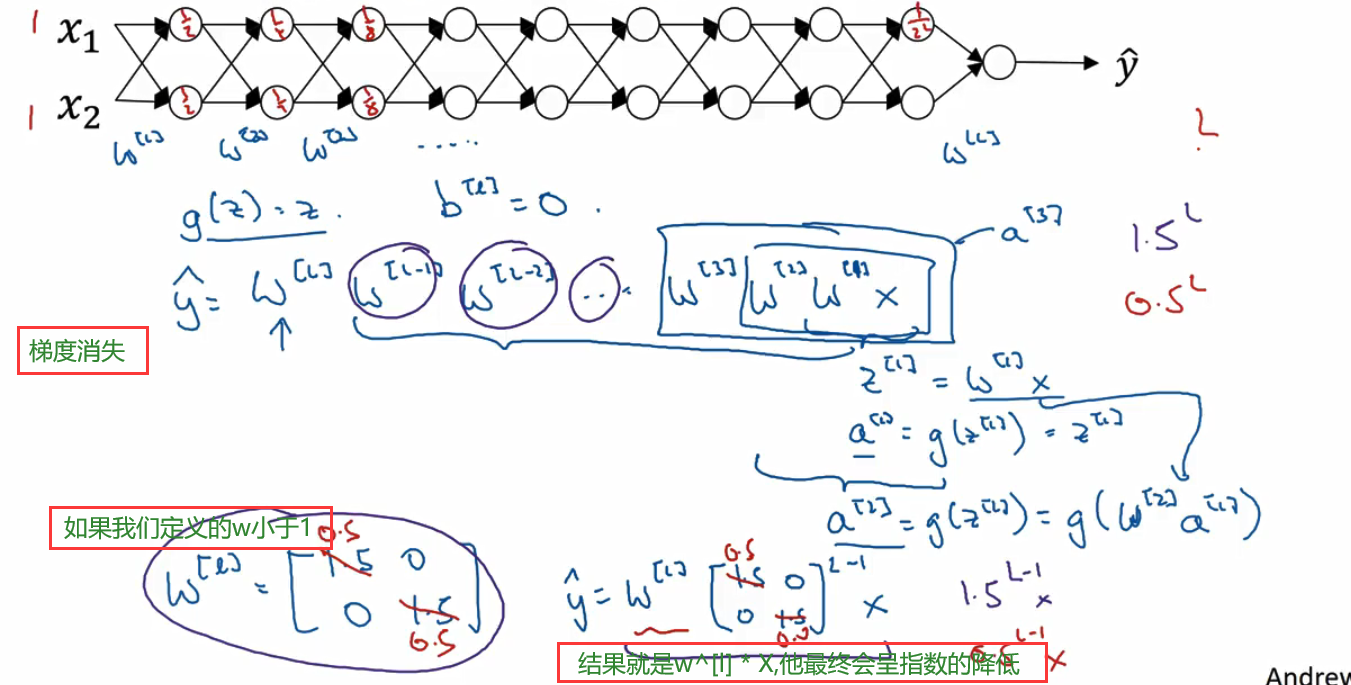 1 x₁ 1/2 1/4 1/8 1/2^L ŷ
1 x₂ 1/2 1/4 1/8
W^[1] W^[2] W^[3] ..... W^[L] L
g(z) = z . b^[l] = 0 .
a^[3]
1.5^L
ŷ = W^[L] W^[L-1] W^[L-2] ... W^[3] W^[2] W^[1] x
0.5^L
梯度消失
z^[1] = W^[1] x
a^[1] = g(z^[1]) = z^[1]
a^[2] = g(z^[2]) = g(W^[2] a^[1])
如果我们定义的w小于1
W^[l] = [1.5 0.5 0
0 1.5 0.5]
ŷ = W^[L] [1.5 0.5 0
0 1.5 0.5]^L-1 x
1.5^L-1 x
0.5^L-1 x
结果就是w^[l] * X,他最终会呈指数的降低
Andrew